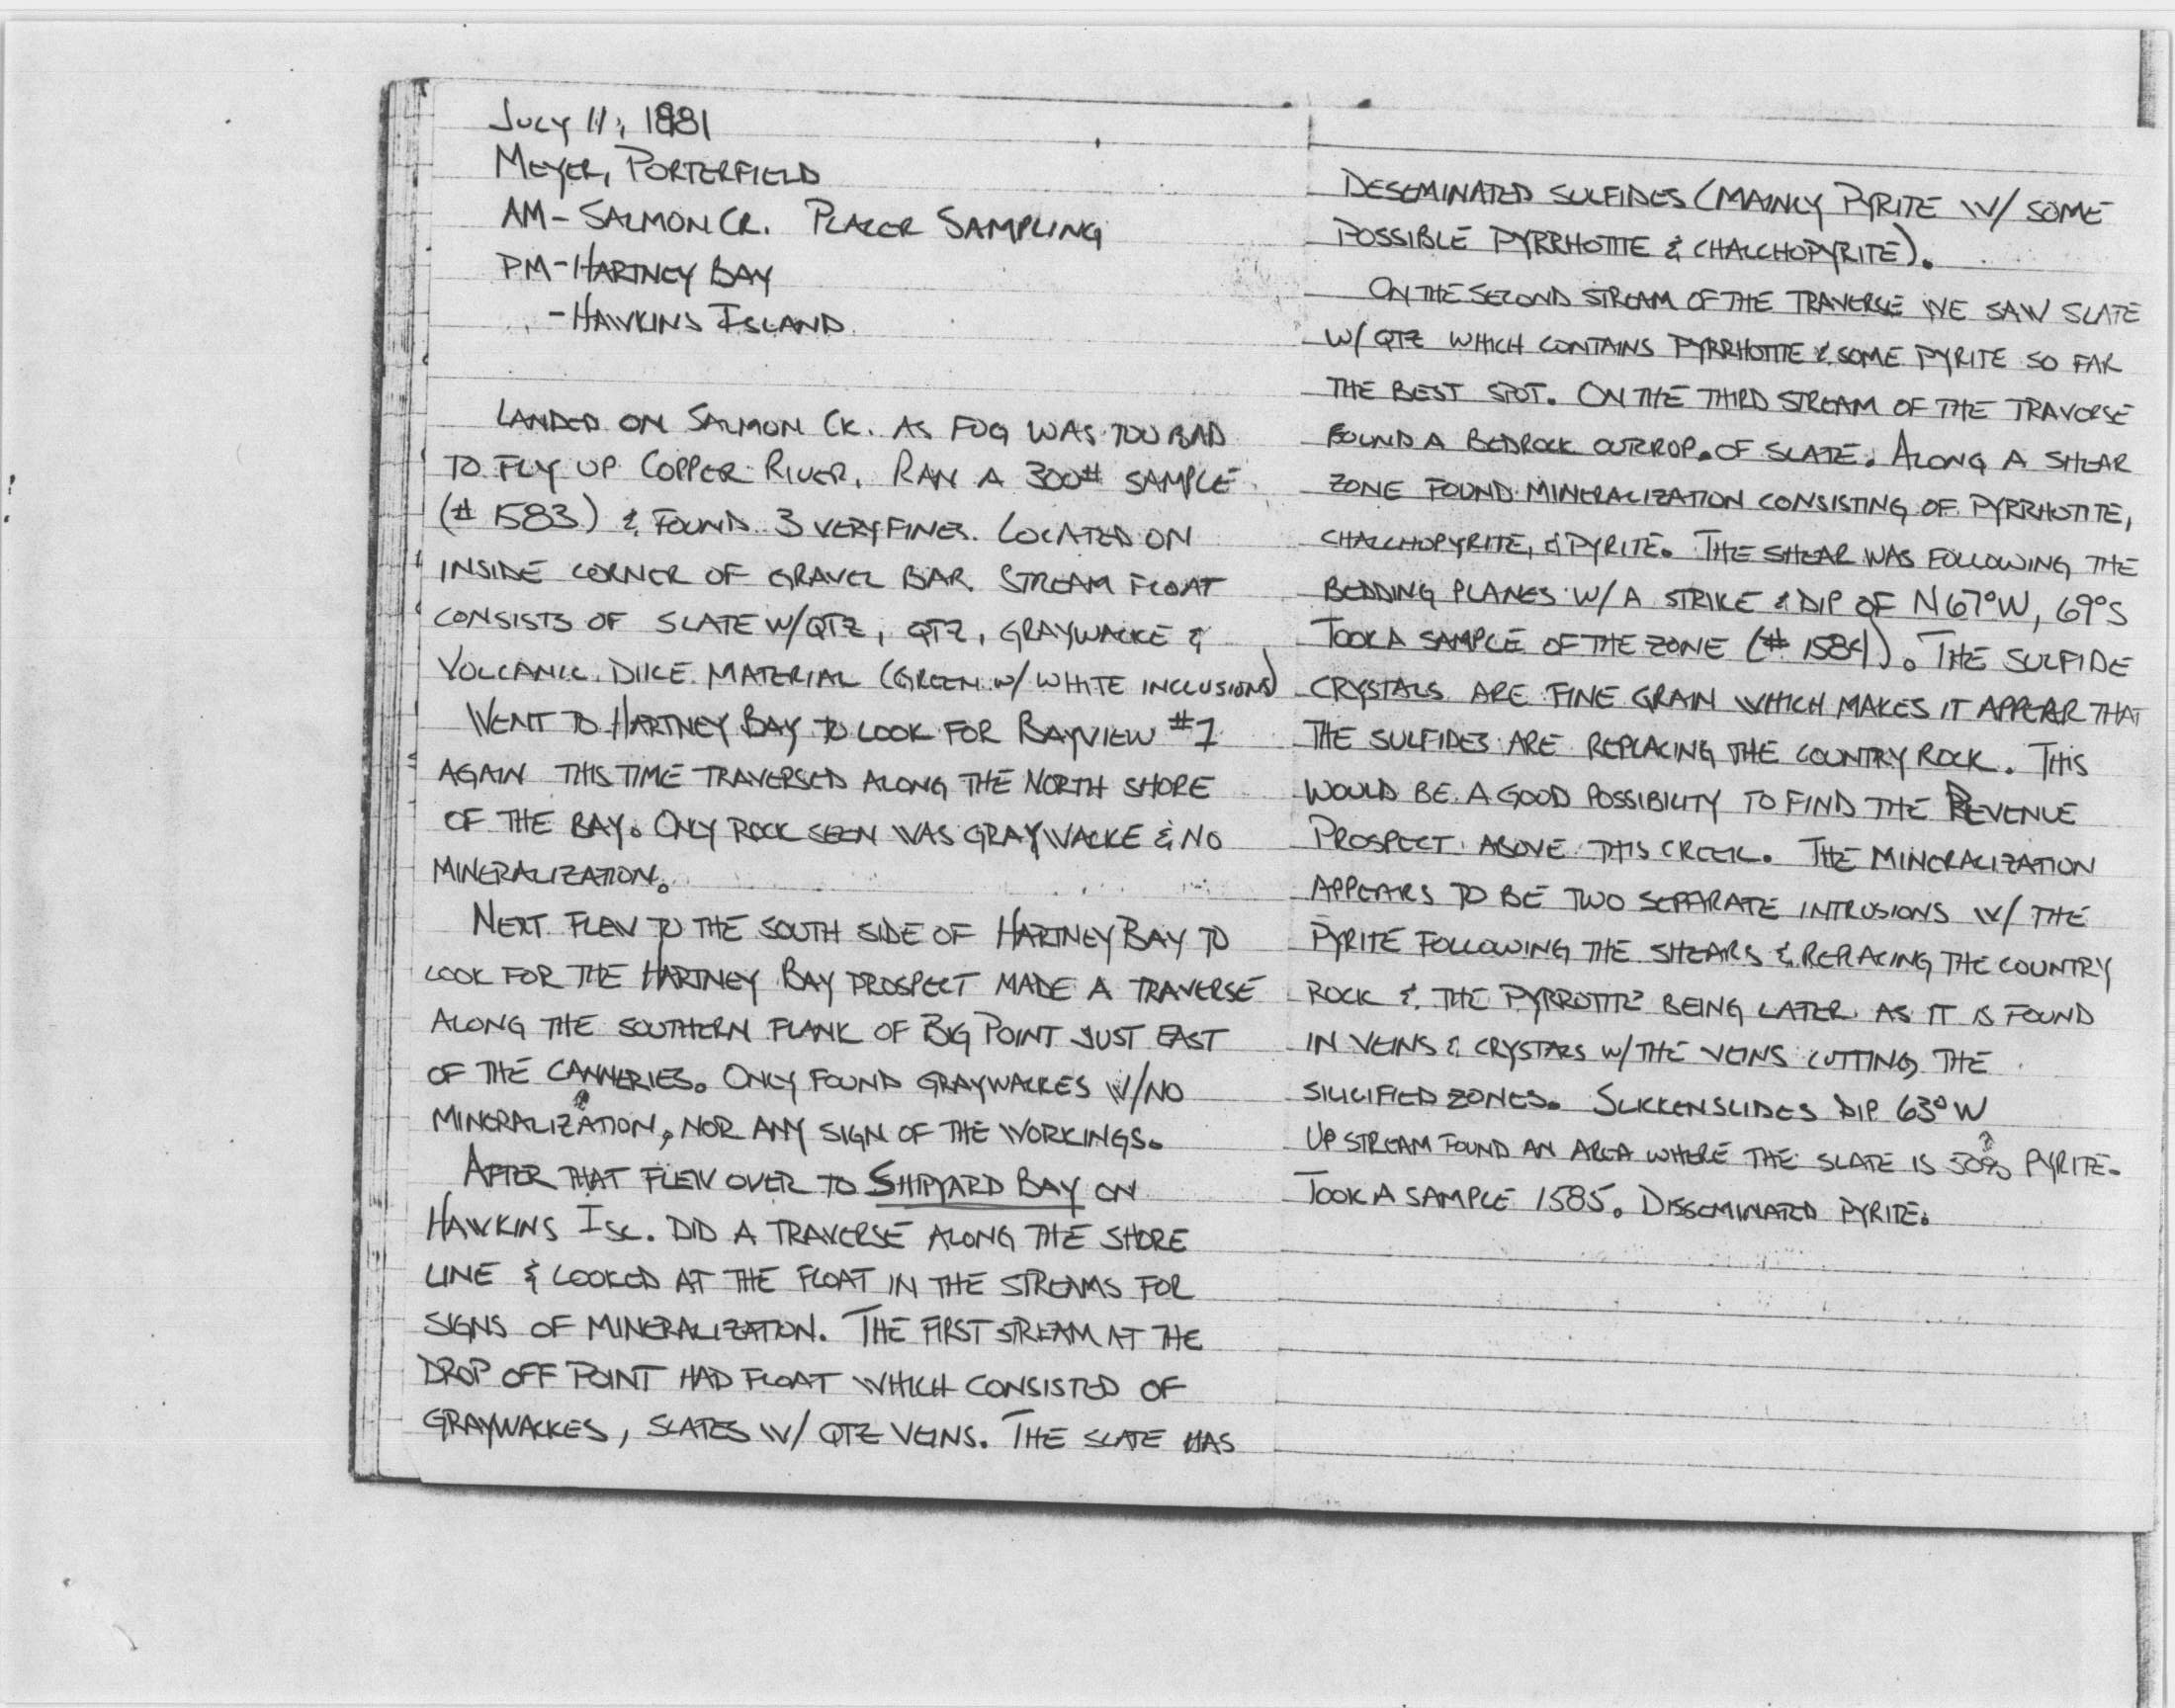 July 11, 1981
Meyer, Porterfield
AM - Salmon Cr. Placer Sampling
PM - Hartney Bay
- Hawkins Island
Landed on Salmon Ck. as fog was too bad
to fly up Copper River. Ran a 300# sample
(# 1583) & found 3 very fines. Located on
inside corner of gravel bar. Stream float
consists of slate w/qtz, qtz, graywacke &
volcanic dike material (green w/ white inclusions)
Went to Hartney Bay to look for Bayview #1
again this time traversed along the north shore
of the bay. Only rock seen was graywacke & no
mineralization.
Next flew to the south side of Hartney Bay to
look for the Hartney Bay prospect made a traverse
along the southern flank of Big Point just east
of the canneries. Only found graywackes w/no
mineralization, nor any sign of the workings.
After that flew over to Shipyard Bay on
Hawkins Isl. Did a traverse along the shore
line & looked at the float in the streams for
signs of mineralization. The first stream at the
drop off point had float which consisted of
graywackes, slates w/ qtz veins. The slate has
deseminated sulfides (mainly pyrite w/ some
possible pyrrhotite & chalchopyrite).
On the second stream of the traverse we saw slate
w/ qtz which contains pyrrhotite & some pyrite so far
the best spot. On the third stream of the traverse
found a bedrock outcrop of slate. Along a shear
zone found mineralization consisting of pyrrhotite,
chalchopyrite, & pyrite. The shear was following the
bedding planes w/ a strike & dip of N67°W, 69°S
Took a sample of the zone (# 1584). The sulfide
crystals are fine grain which makes it appear that
the sulfides are replacing the country rock. This
would be a good possibility to find the Revenue
Prospect above this creek. The mineralization
appears to be two separate intrusions w/ the
pyrite following the shears & replacing the country
rock & the pyrrotite being later as it is found
in veins & crystals w/the veins cutting the
silicified zones. Slickenslides dip 63°W
Up stream found an area where the slate is 50%? pyrite.
Took a sample 1585. Disseminated pyrite.